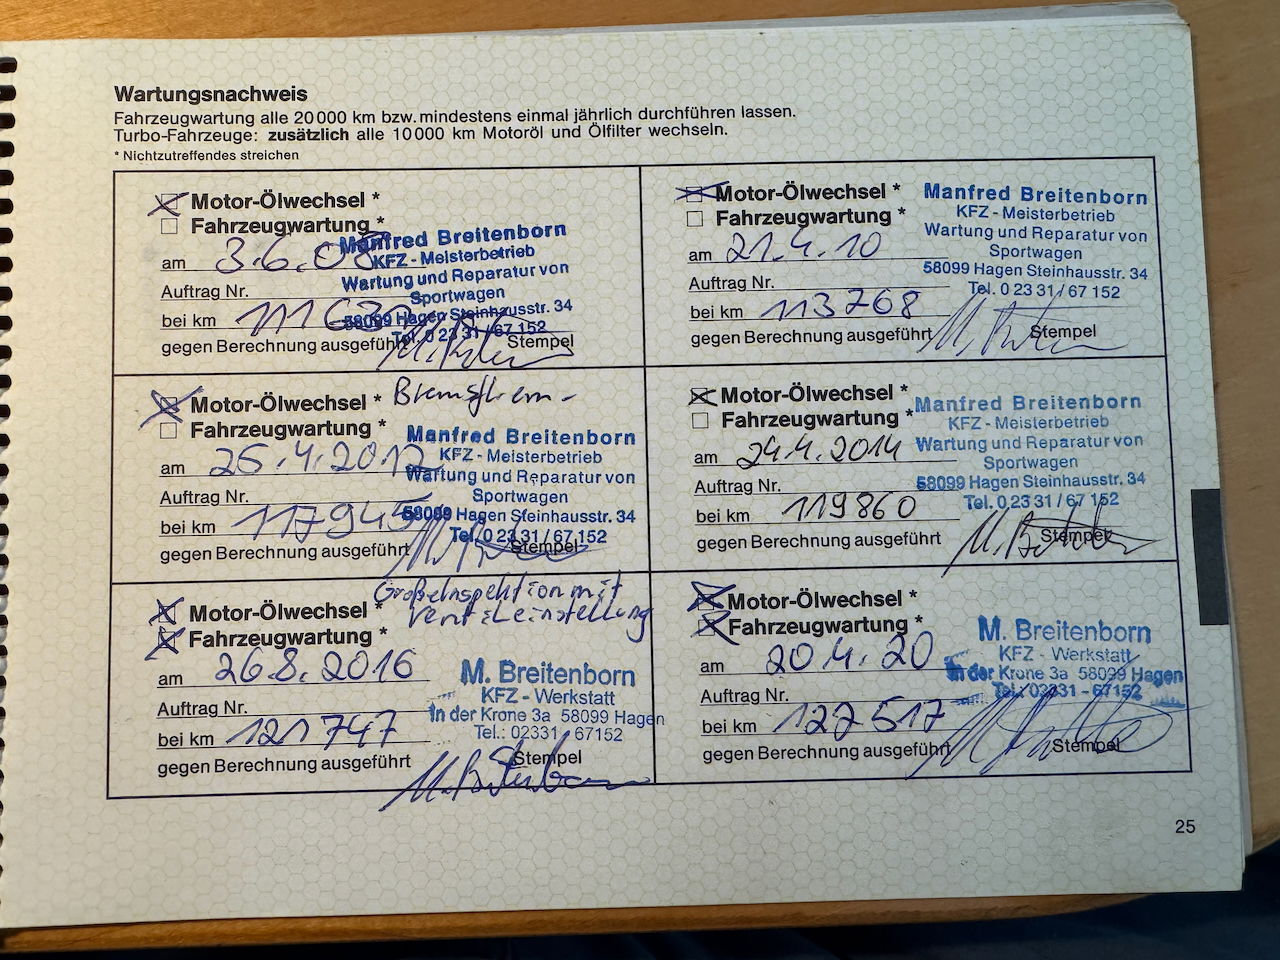 Wartungsnachweis
Fahrzeugwartung alle 20000 km bzw. mindestens einmal jährlich durchführen lassen.
Turbo-Fahrzeuge: zusätzlich alle 10000 km Motoröl und Ölfilter wechseln.
* Nichtzutreffendes streichen
Motor-Ölwechsel *
Fahrzeugwartung *
am 3.6.08
Auftrag Nr.
bei km
gegen Berechnung ausgeführt
Stempel
Manfred Breitenborn
KFZ - Meisterbetrieb
Wartung und Reparatur von
Sportwagen
58099 Hagen Steinhausstr. 34
Tel. 0 23 31 / 67 152
Motor-Ölwechsel *
Fahrzeugwartung *
am 21.4.10
Auftrag Nr.
bei km 113768
gegen Berechnung ausgeführt
Stempel
Manfred Breitenborn
KFZ - Meisterbetrieb
Wartung und Reparatur von
Sportwagen
58099 Hagen Steinhausstr. 34
Tel. 0 23 31 / 67 152
Motor-Ölwechsel *
Fahrzeugwartung *
am 25.4.2012
Auftrag Nr.
bei km 117945
gegen Berechnung ausgeführt
Stempel
Manfred Breitenborn
KFZ - Meisterbetrieb
Wartung und Reparatur von
Sportwagen
58099 Hagen Steinhausstr. 34
Tel. 0 23 31 / 67 152
Motor-Ölwechsel *
Fahrzeugwartung *
am 24.4.2014
Auftrag Nr.
bei km 119860
gegen Berechnung ausgeführt
Stempel
Manfred Breitenborn
KFZ - Meisterbetrieb
Wartung und Reparatur von
Sportwagen
58099 Hagen Steinhausstr. 34
Tel. 0 23 31 / 67 152
Großinspektion mit
Ventileinstellung
Motor-Ölwechsel *
Fahrzeugwartung *
am 26.8.2016
Auftrag Nr.
bei km 121747
gegen Berechnung ausgeführt
Stempel
M. Breitenborn
KFZ - Werkstatt
In der Krone 3a 58099 Hagen
Tel.: 02331 67152
Motor-Ölwechsel *
Fahrzeugwartung *
am 20.4.20
Auftrag Nr.
bei km 122517
gegen Berechnung ausgeführt
Stempel
M. Breitenborn
KFZ - Werkstatt
In der Krone 3a 58099 Hagen
Tel.: 02331 - 67152
25